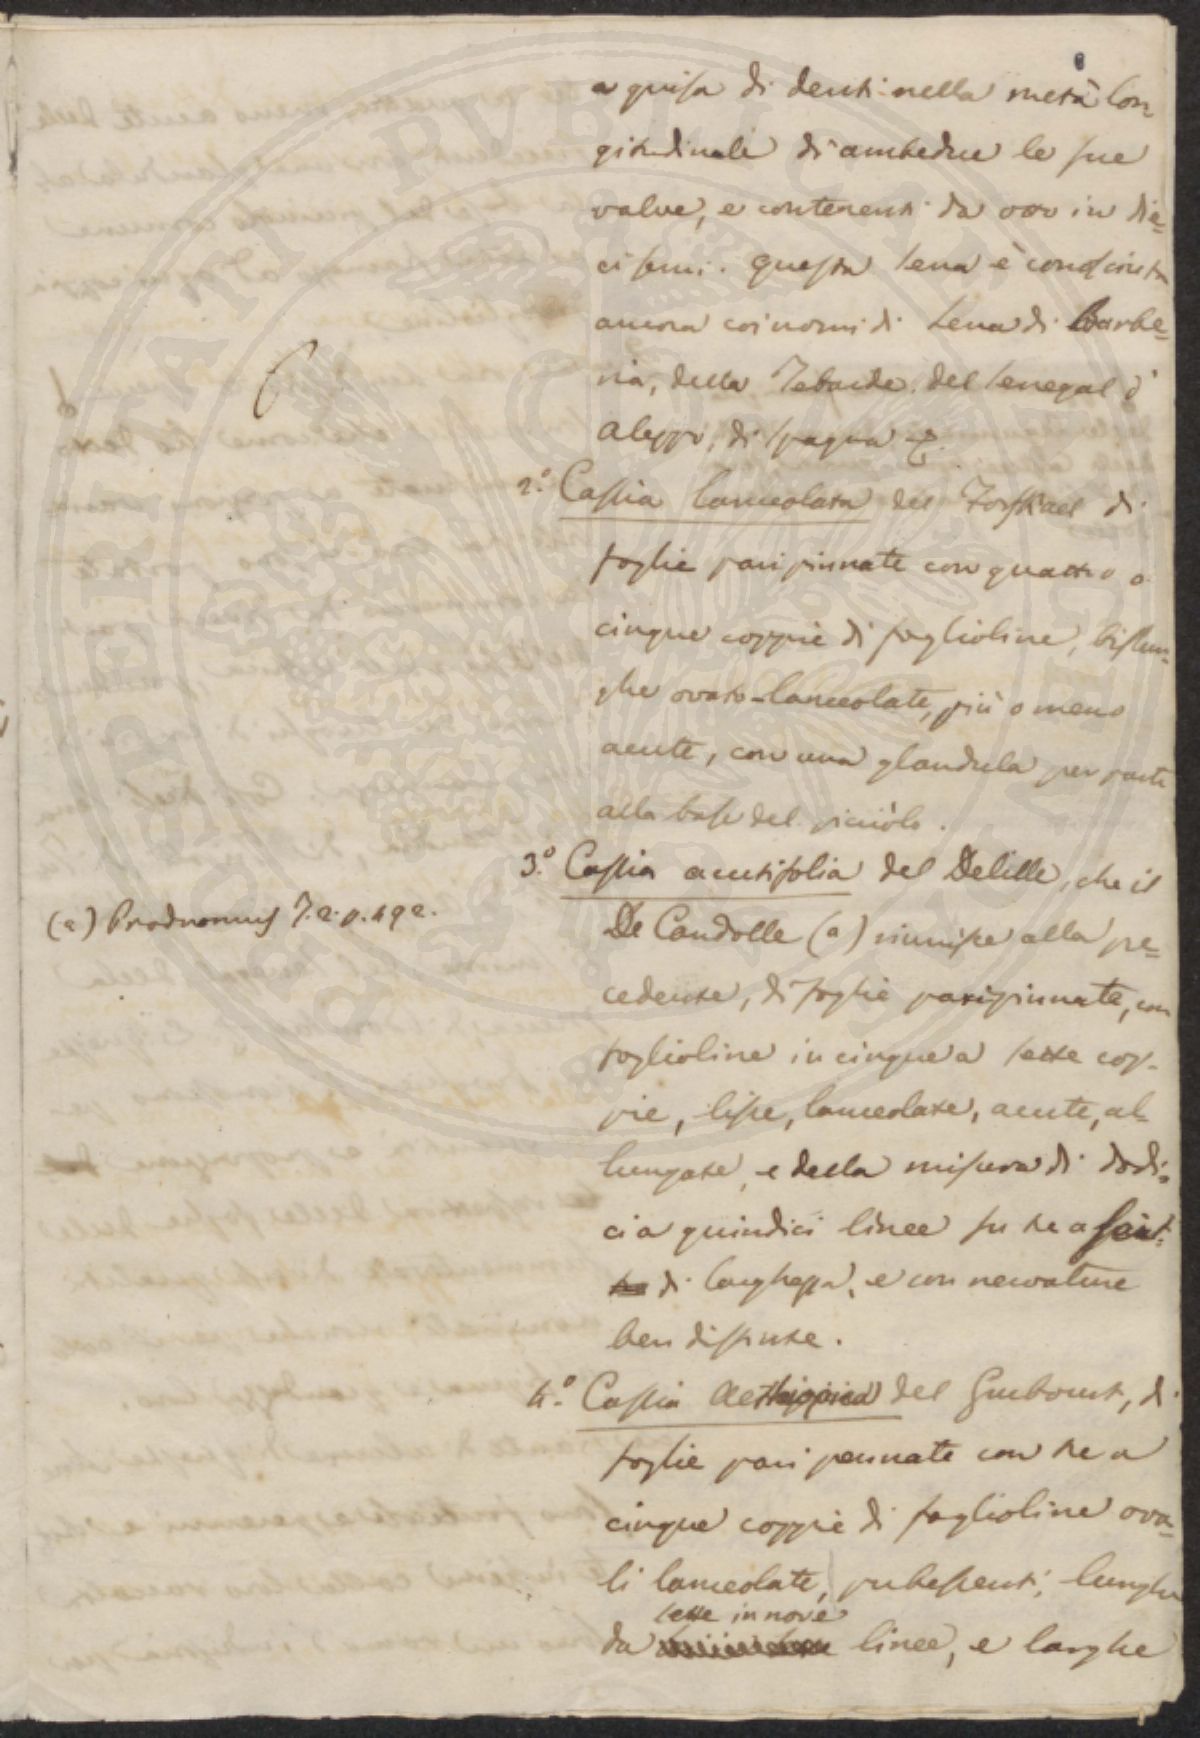 a guisa di denti nella metà lon-
gitudinale di ambedue le sue
valve, e contenenti da otto in die-
ci semi. Questa sena è conosciuta
ancora coi nomi di sena di Barbe-
ria, della Tebaide, del Senegal d'
Aleppo, di Spagna &.
2.° Cassia lanceolata del Forskael di
foglie pari pinnate con quattro o
cinque coppie di foglioline, bislun-
ghe ovato-lanceolate, più o meno
acute, con una glandula per parte
alla base del picciòlo.
3.° Cassia acutifolia del Delille, che il
De Candolle (a) riunisce alla pre-
cedente, di foglie paripinnate, con
foglioline in cinque a sette cop-
pie, lisce, lanceolate, acute, al-
lungate, e della misura di dodi-
ci a quindici linee su tre a
di larghezza, e con nervature
ben distinte.
(a) Prodromus T. 2. p. 492.
4.° Cassia Aethiopica del Guibourt, di
foglie pari pennate con tre a
cinque coppie di foglioline ova-
li lanceolate, pubescenti, lunghe
sette in nove
da linee, e larghe
PERITATI PVBLICAE